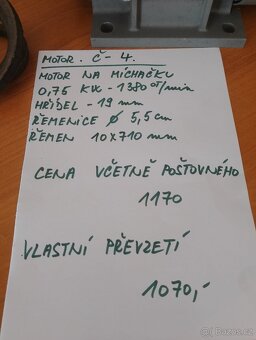 MOTOR. Č - 4.
MOTOR NA MÍCHAČKU
0,75 KW - 1380 OT/min
HŘÍDEL - 19 mm
ŘEMENICE Ø 5,5 cm
ŘEMEN 10x710 mm
CENA VČETNĚ POŠTOVNÉHO
1170
VLASTNÍ PŘEVZETÍ
1070,-
Bazoš.cz